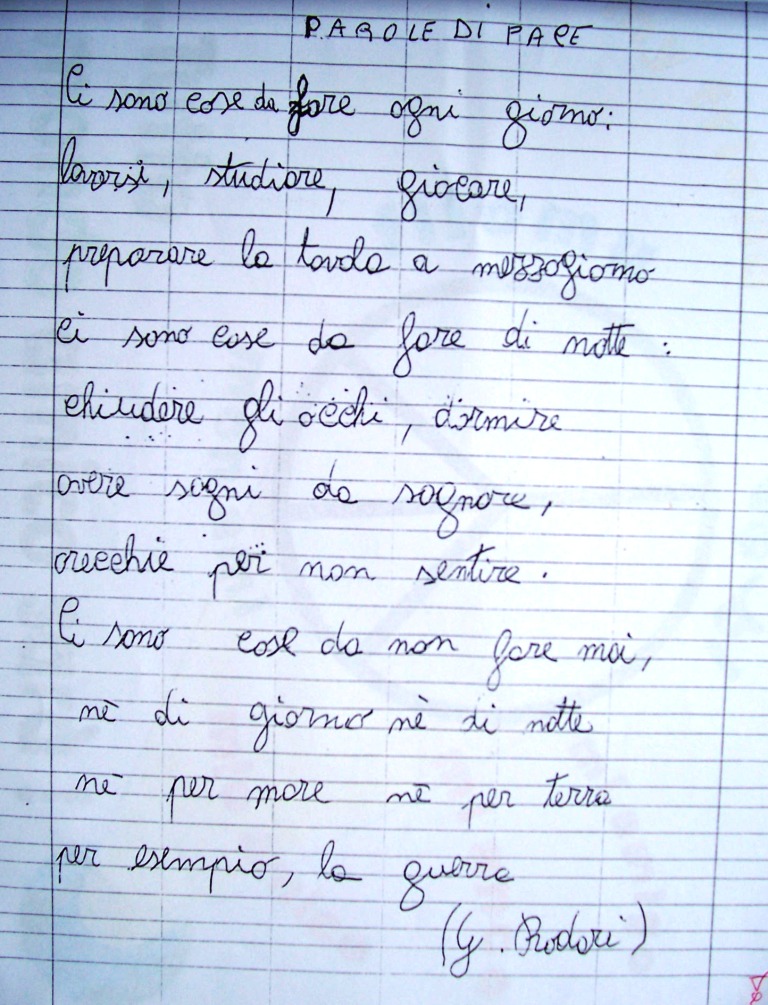 PAROLE DI PACE
Ci sono cose da fare ogni giorno:
lavarsi, studiare, giocare,
preparare la tavola a mezzogiorno
ci sono cose da fare di notte:
chiudere gli occhi, dormire
avere sogni da sognare,
orecchie per non sentire.
Ci sono cose da non fare mai,
nè di giorno nè di notte
nè per mare nè per terra
per esempio, la guerra
(G. Rodari)